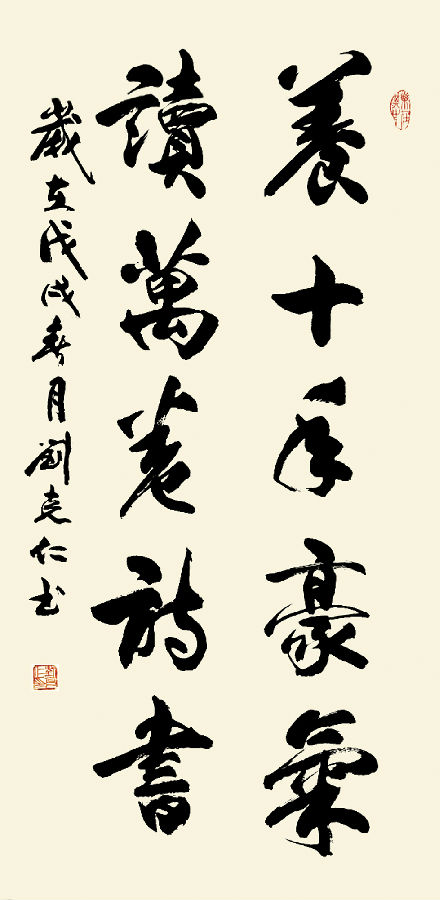 養十年豪氣
讀萬卷詩書
歲在戊戌春月劉克仁書